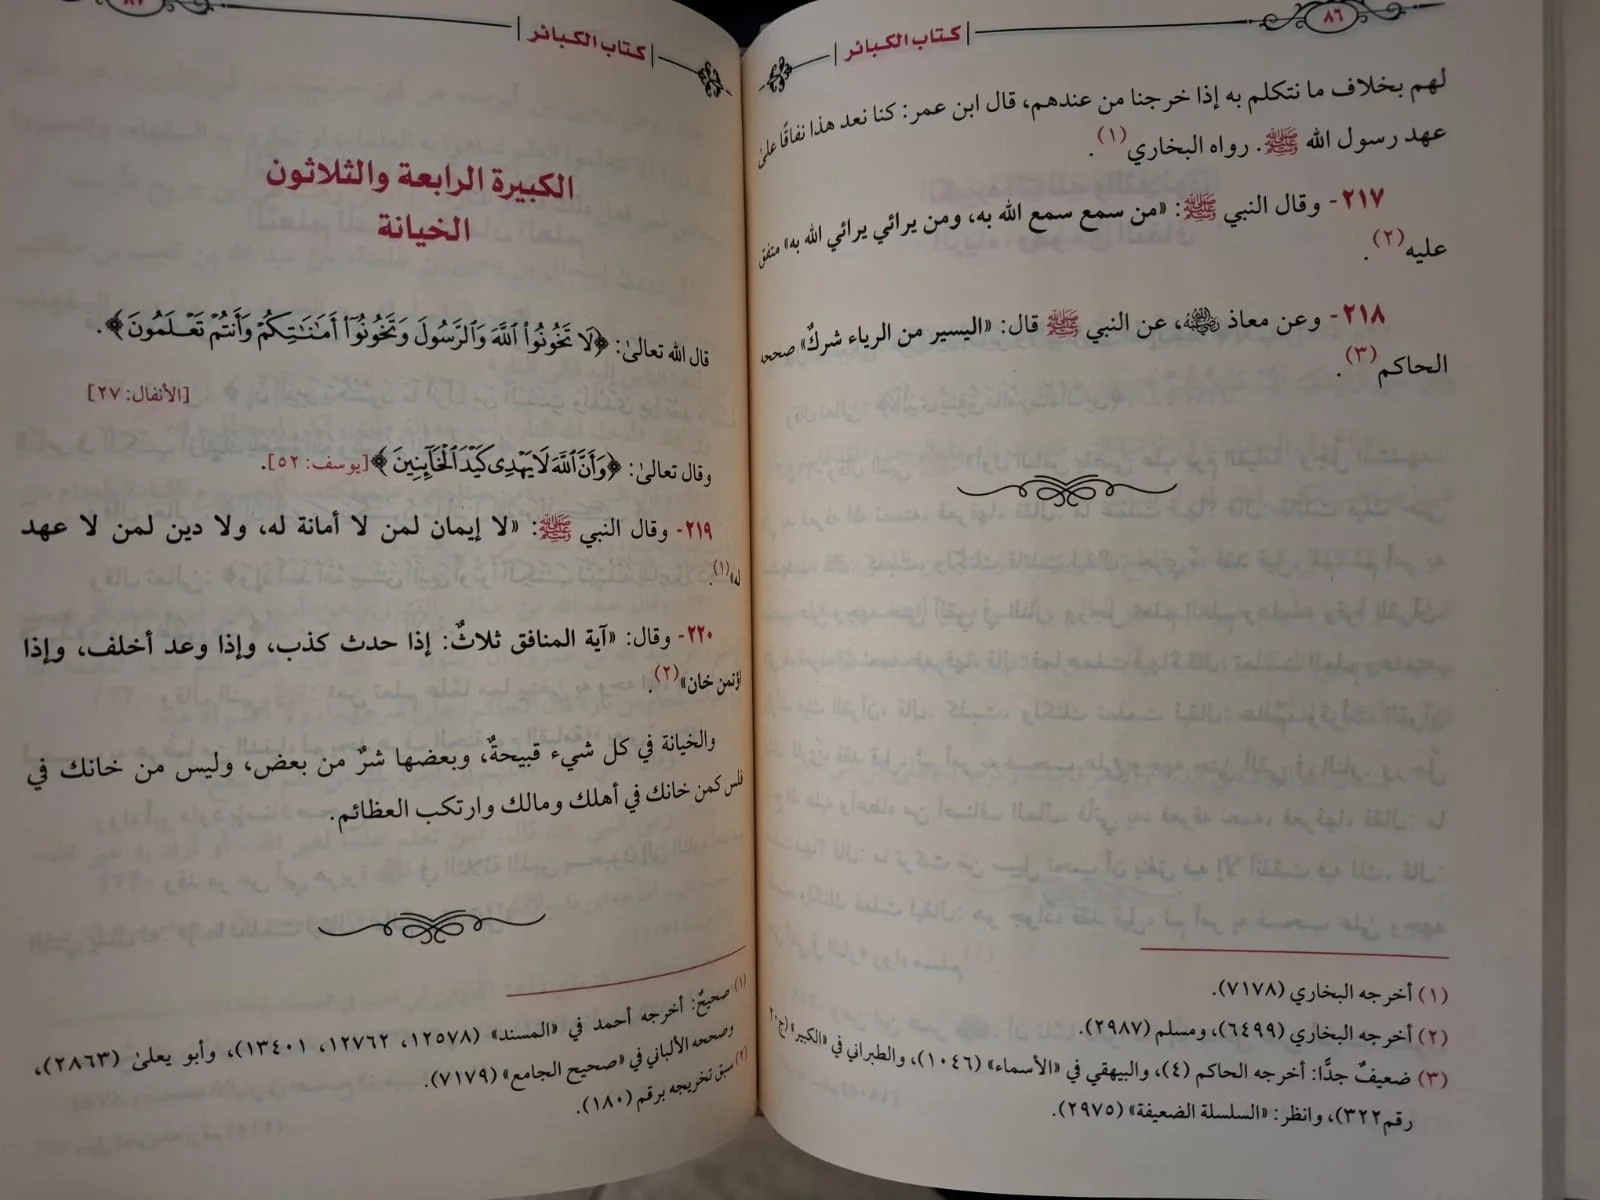 ٨٦
كتاب الكبائر
لهم بخلاف ما نتكلم به إذا خرجنا من عندهم، قال ابن عمر: كنا نعد هذا نفاقًا علىٰ
عهد رسول الله ﷺ. رواه البخاري(١).
٢١٧- وقال النبي ﷺ: «من سمع سمع الله به، ومن يرائي يرائي الله به» متفق
عليه(٢).
٢١٨- وعن معاذ رضي الله عنه، عن النبي ﷺ قال: «اليسير من الرياء شركٌ» صححه
الحاكم(٣).
(١) أخرجه البخاري (٧١٧٨).
(٢) أخرجه البخاري (٦٤٩٩)، ومسلم (٢٩٨٧).
(٣) ضعيفٌ جدًّا: أخرجه الحاكم (٤)، والبيهقي في «الأسماء» (١٠٤٦)، والطبراني في «الكبير» (ج٢٠
رقم٣٢٢)، وانظر: «السلسلة الضعيفة» (٢٩٧٥).
كتاب الكبائر
الكبيرة الرابعة والثلاثون
الخيانة
قال الله تعالىٰ: ﴿لَا تَخُونُوا۟ ٱللَّهَ وَٱلرَّسُولَ وَتَخُونُوٓا۟ أَمَـٰنَـٰتِكُمْ وَأَنتُمْ تَعْلَمُونَ﴾.
[الأنفال: ٢٧]
وقال تعالىٰ: ﴿وَأَنَّ ٱللَّهَ لَا يَهْدِى كَيْدَ ٱلْخَآئِنِينَ﴾ [يوسف: ٥٢].
٢١٩- وقال النبي ﷺ: «لا إيمان لمن لا أمانة له، ولا دين لمن لا عهد
له»(١).
٢٢٠- وقال: «آية المنافق ثلاثٌ: إذا حدث كذب، وإذا وعد أخلف، وإذا
اؤتمن خان»(٢).
والخيانة في كل شيء قبيحةٌ، وبعضها شرٌ من بعض، وليس من خانك في
فلس كمن خانك في أهلك ومالك وارتكب العظائم.
(١) صحيحٌ: أخرجه أحمد في «المسند» (١٢٥٧٨، ١٢٧٦٢، ١٣٤٠١)، وأبو يعلىٰ (٢٨٦٣)،
وصححه الألباني في «صحيح الجامع» (٧١٧٩).
(٢) سبق تخريجه برقم (١٨٠).